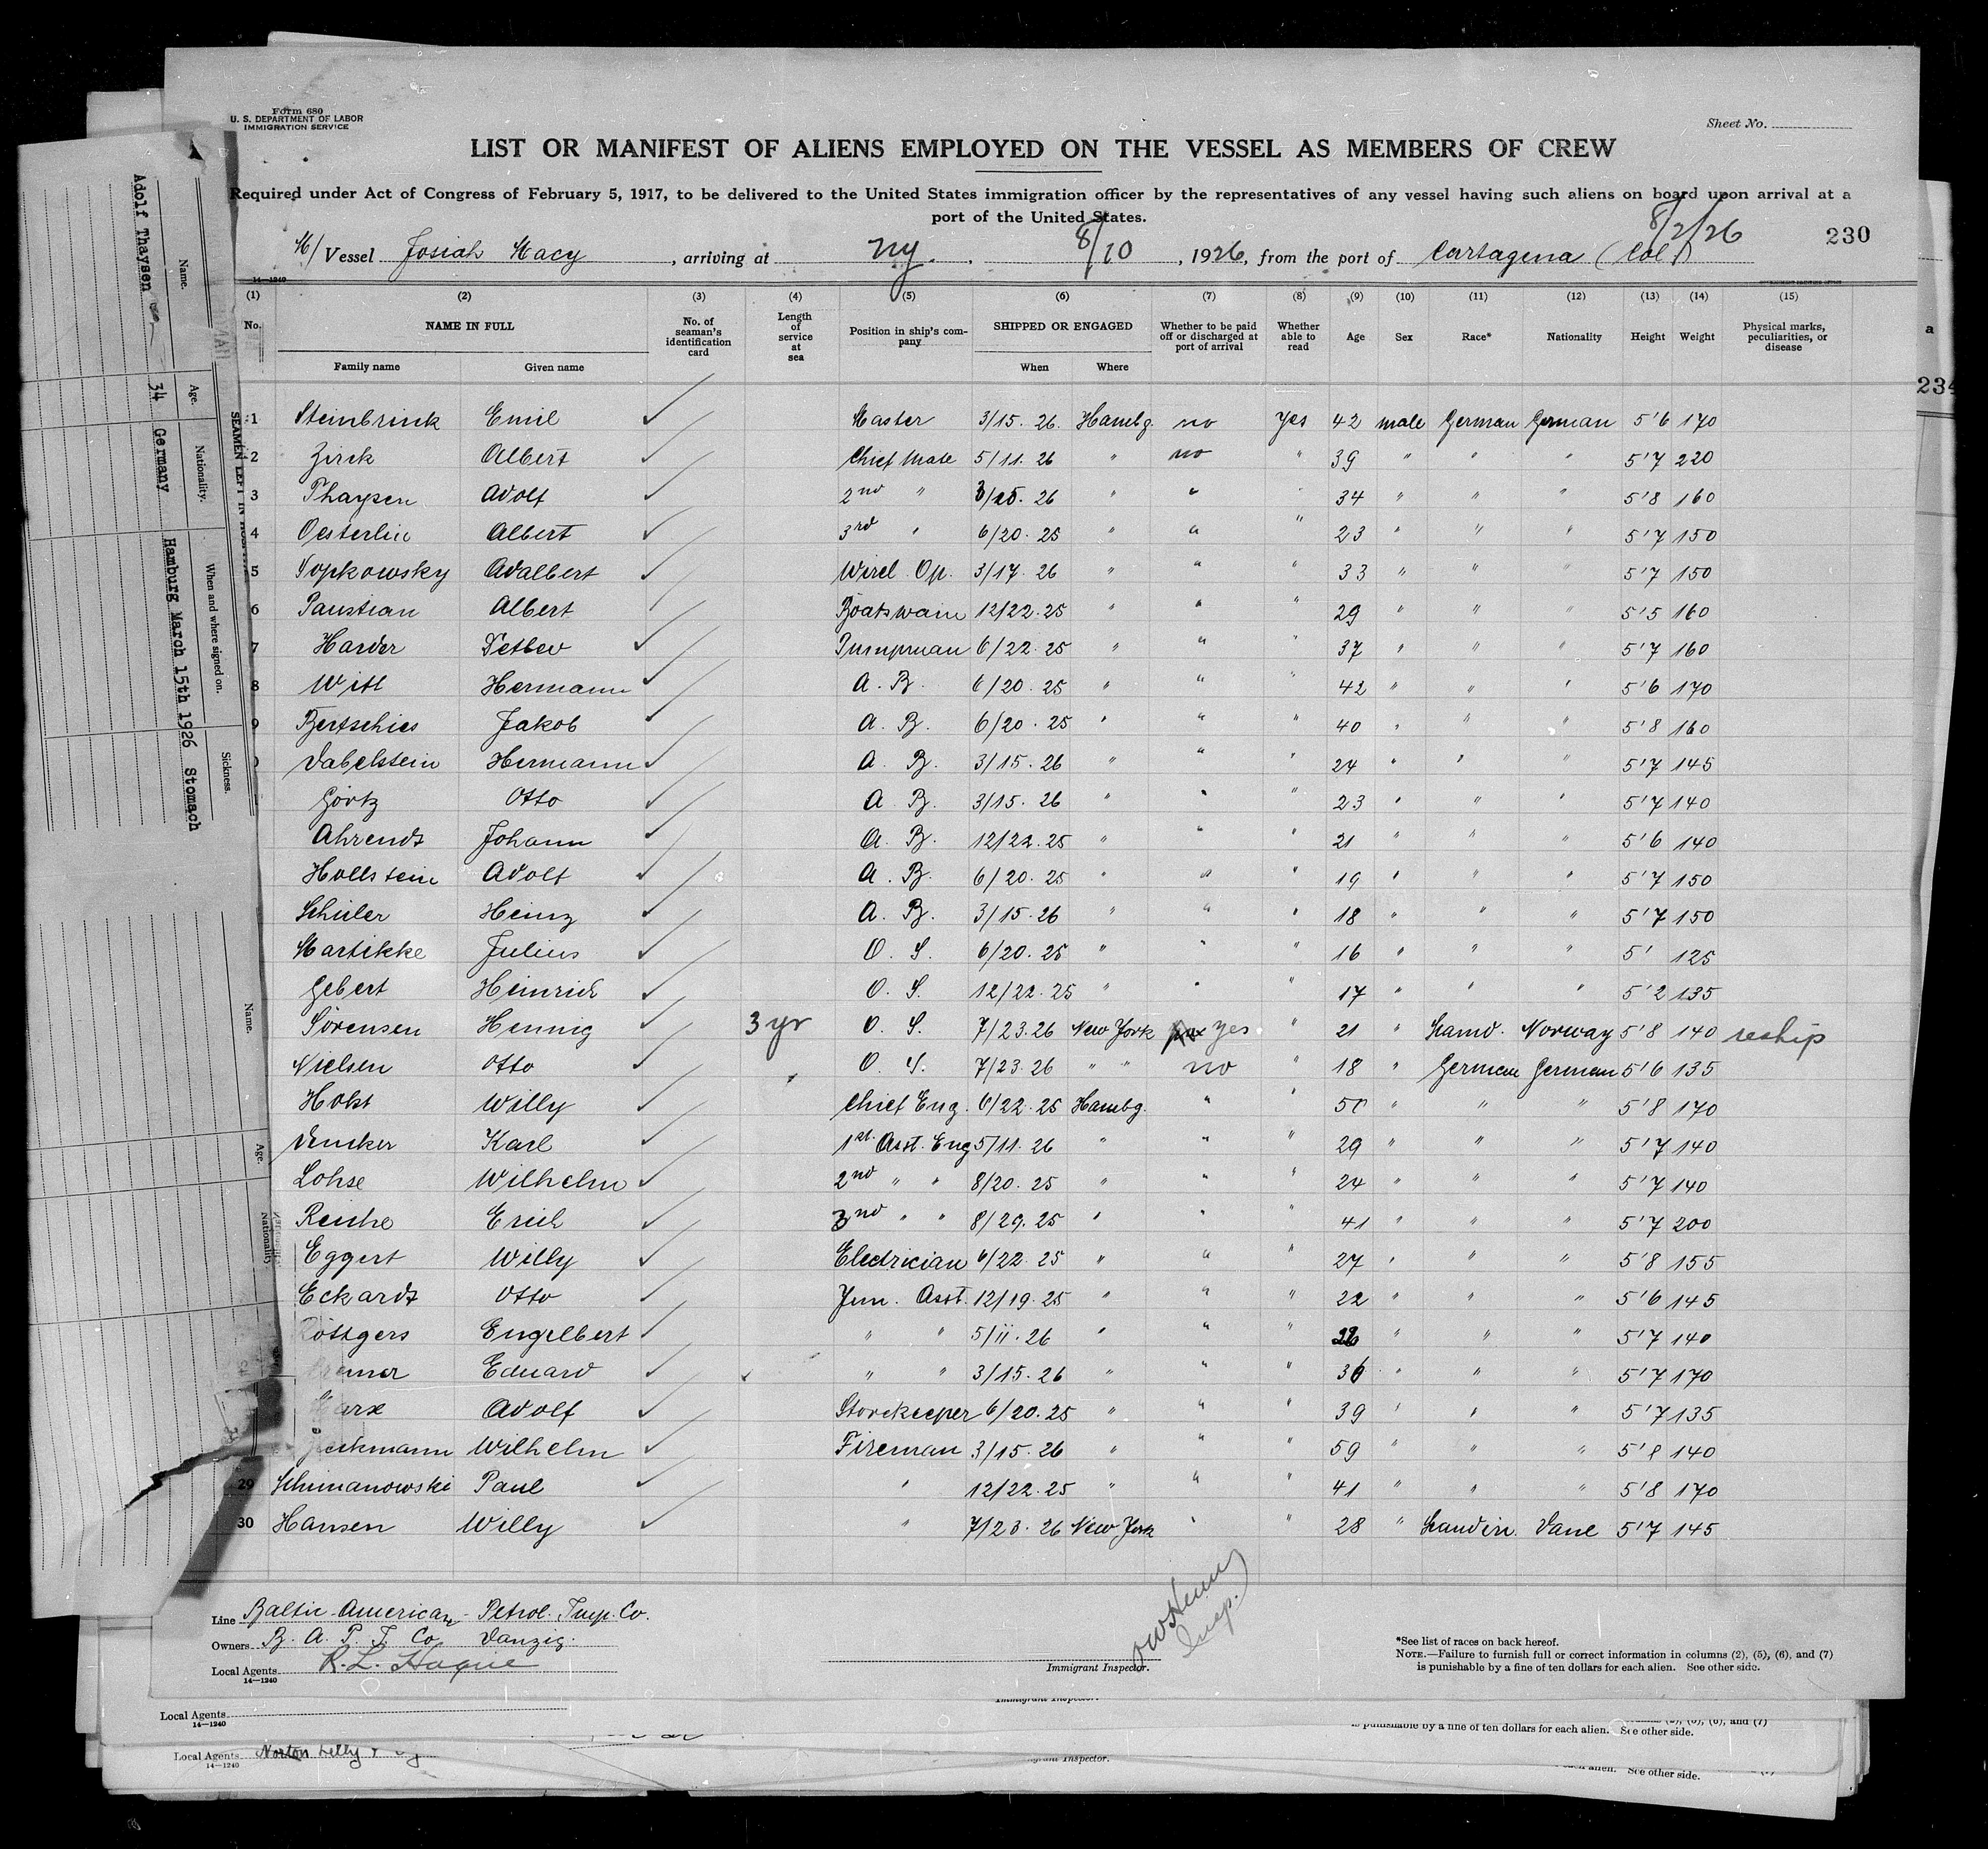 Form 680
U. S. DEPARTMENT OF LABOR
IMMIGRATION SERVICE
Sheet No.
LIST OR MANIFEST OF ALIENS EMPLOYED ON THE VESSEL AS MEMBERS OF CREW
Required under Act of Congress of February 5, 1917, to be delivered to the United States immigration officer by the representatives of any vessel having such aliens on board upon arrival at a
port of the United States.
8/2/26
230
M/ Vessel Josiah Macy, arriving at NY. 8/10, 1926, from the port of Cartagena (Col)
14—1240
(1) (2) (3) (4) (5) (6) (7) (8) (9) (10) (11) (12) (13) (14) (15)
No. NAME IN FULL No. of seaman's identification card Length of service at sea Position in ship's company SHIPPED OR ENGAGED Whether to be paid off or discharged at port of arrival Whether able to read Age Sex Race* Nationality Height Weight Physical marks, peculiarities, or disease
Family name Given name When Where
1 Steinbrink Emil Master 3/15. 26. Hambg. no yes 42 male German German 5'6 170
2 Zirck Albert Chief Mate 5/11. 26 " no " 39 " " " 5'7 220
3 Thaysen Adolf 2nd " 3/15. 26 " " " 34 " " " 5'8 160
4 Oesterlin Albert 3rd " 6/20. 25 " " " 23 " " " 5'7 150
5 Sopkowsky Adalbert Wirel. Op. 3/17. 26 " " " 33 " " " 5'7 150
6 Paustian Albert Boatswain 12/22. 25 " " " 29 " " " 5'5 160
7 Harder Detlev Pumpman 6/22. 25 " " " 37 " " " 5'7 160
8 Witt Hermann A. B. 6/20. 25 " " " 42 " " " 5'6 170
9 Bertschies Jakob A. B. 6/20. 25 " " " 40 " " " 5'8 160
Dabelstein Hermann A. B. 3/15. 26 " " " 24 " " " 5'7 145
Görtz Otto A. B. 3/15. 26 " " " 23 " " " 5'7 140
Ahrendt Johann A. B. 12/22. 25 " " " 21 " " " 5'6 140
Hollstein Adolf A. B. 6/20. 25 " " " 19 " " " 5'7 150
Schüler Heinz A. B. 3/15. 26 " " " 18 " " " 5'7 150
Martikke Julius O. S. 6/20. 25 " " " 16 " " " 5' 125
Gebert Heinrich O. S. 12/22. 25 " " " 17 " " " 5'2 135
Sörensen Hennig 3 yr O. S. 7/23. 26 New York yes " 21 " Scand. Norway 5'8 140 reship
Nielsen Otto O. S. 7/23. 26 " " no " 18 " German German 5'6 135
Holst Willy Chief Eng. 6/22. 25 Hambg. " " 50 " " " 5'8 170
Karl 1st Asst. Eng 5/11. 26 " " " 29 " " " 5'7 140
Lohse Wilhelm 2nd " " 8/20. 25 " " " 24 " " " 5'7 140
Reiche Erich 3nd " " 8/29. 25 " " " 41 " " " 5'7 200
Eggert Willy Electrician 6/22. 25 " " " 27 " " " 5'8 155
Eckardt Otto Jun. Asst. 12/19. 25 " " " 22 " " " 5'6 145
Röttgers Engelbert " " 5/11. 26 " " " " " " 5'7 140
Eduard " " 3/15. 26 " " " 36 " " " 5'7 170
Adolf Storekeeper 6/20. 25 " " " 39 " " " 5'7 135
Wilhelm Fireman 3/15. 26 " " " 59 " " " 5'8 140
29 Schimanowski Paul " 12/22. 25 " " " 41 " " " 5'8 170
30 Hansen Willy " 7/23. 26 New York " " 28 " Scandin. Dane 5'7 145
Line Baltic-American-Petrol. Imp. Co.
Owners B. A. P. I. Co Danzig.
Local Agents R. L. Hague
14—1240
Insp.
Immigrant Inspector.
*See list of races on back hereof.
NOTE.—Failure to furnish full or correct information in columns (2), (5), (6), and (7)
is punishable by a fine of ten dollars for each alien. See other side.
Local Agents
14—1240
Immigrant Inspector.
is punishable by a fine of ten dollars for each alien. See other side.
Local Agents Norton Lilly
14—1240
Inspector.
See other side.
234
SEAMEN LEFT IN
Name. Age. Nationality. When and where signed on. Sickness.
Adolf Thaysen 34 Germany Hamburg March 15th 1926 Stomach
Name. Age. Nationality